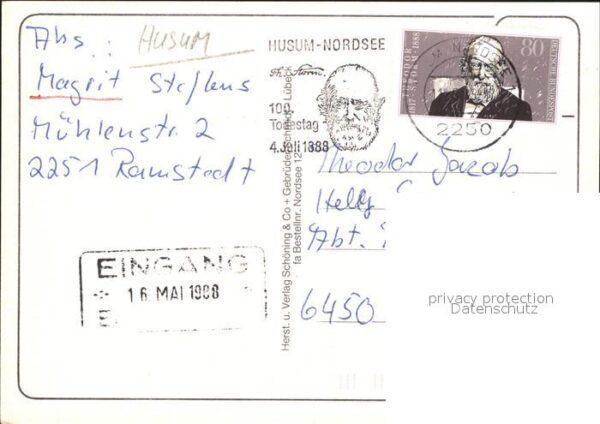 Abs.:
Husum
Magrit Steffens
Mühlenstr. 2
2251 Ramstedt
HUSUM-NORDSEE
Th. Storm
100.
Todestag
4. Juli 1888
THEODOR
STORM
1817
1888
80
DEUTSCHE BUNDESPOST
2250
Herst. u. Verlag Schöning & Co + Gebrüder Schmidt - Lübeck
fa Bestellnr. Nordsee 12
Theodor Jacob
Abt.
6450
EINGANG
16. MAI 1988
privacy protection
Datenschutz